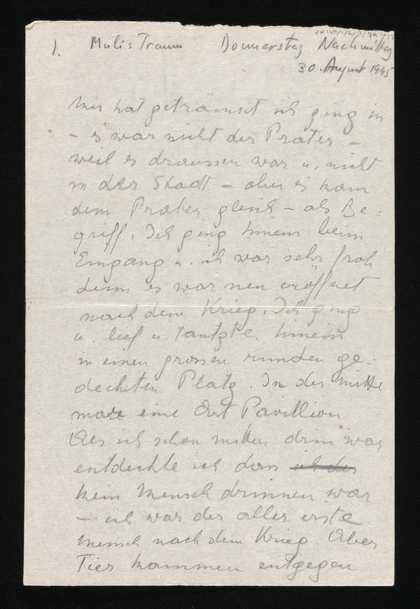 1. Mulis Traum Donnerstag Nachmittag
30. August 1945
Mir hat getraeumt ich ging in
– es war nicht der Prater –
weil es draussen war u. nicht
in der Stadt – aber es kam
dem Prater gleich – als Be=
griff. Ich ging hinein beim
Eingang u. ich war sehr froh
denn es war neu eröffnet
nach dem Krieg. Ich ging
u. lief u. tantzte hinein
in einen grossen runden ge-
deckten Platz. In der mitte
war eine Art Pavillion
Als ich schon mitten drin war
entdeckte ich dass
kein Mensch drinnen war
– ich war der aller erste
Mensch nach dem Krieg Aber
Tier kammen entgegen